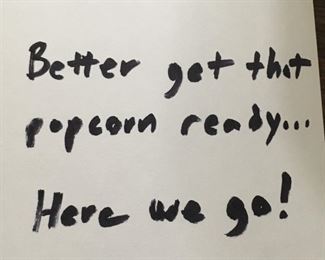 Better get that
popcorn ready...
Here we go!